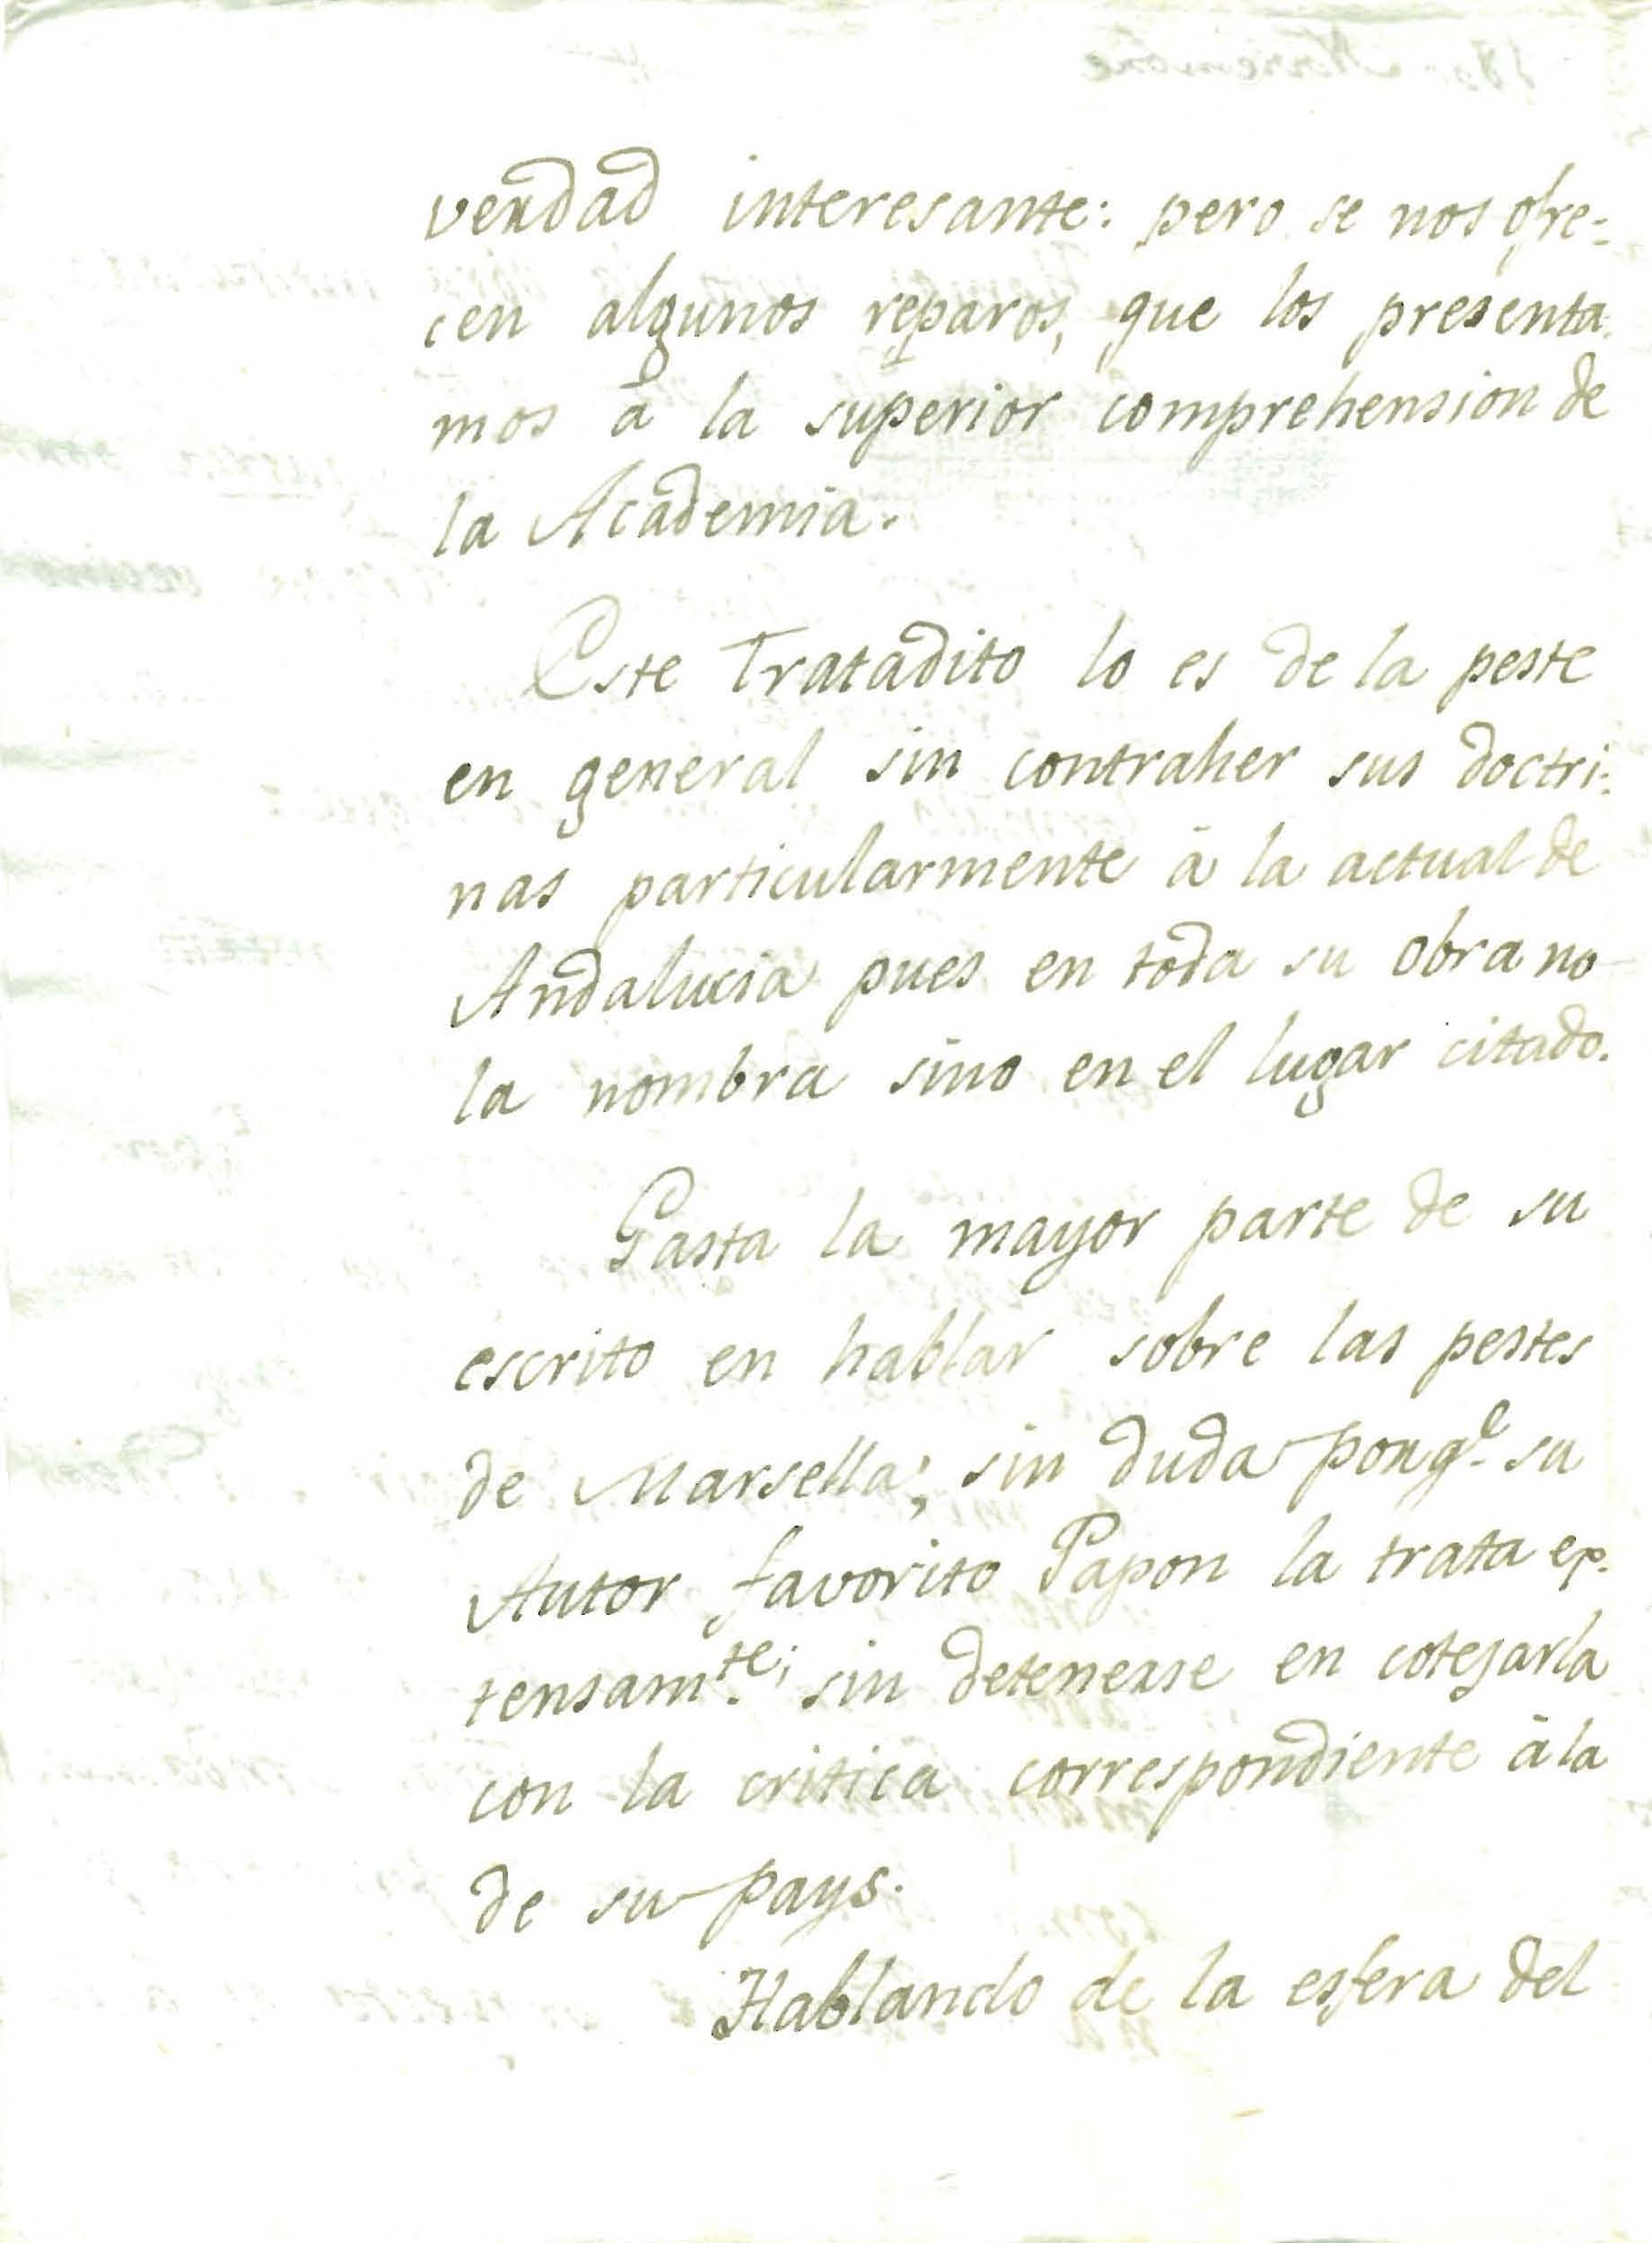 verdad interesante: pero se nos ofre-
cen algunos reparos, que los presenta-
mos à la superior comprehension de
la Academia.
Este Tratadito lo es de la peste
en general sin contraher sus doctri-
nas particularmente à la actual de
Andalucia pues en toda su obra no
la nombra sino en el lugar citado.
Gasta la mayor parte de su
escrito en hablar sobre las pestes
de Marsella; sin duda porq.e su
Autor favorito Papon la trata ex-
tensam.te; sin detenerse en cotejarla
con la critica correspondiente à la
de su pays.
Hablando de la esfera del